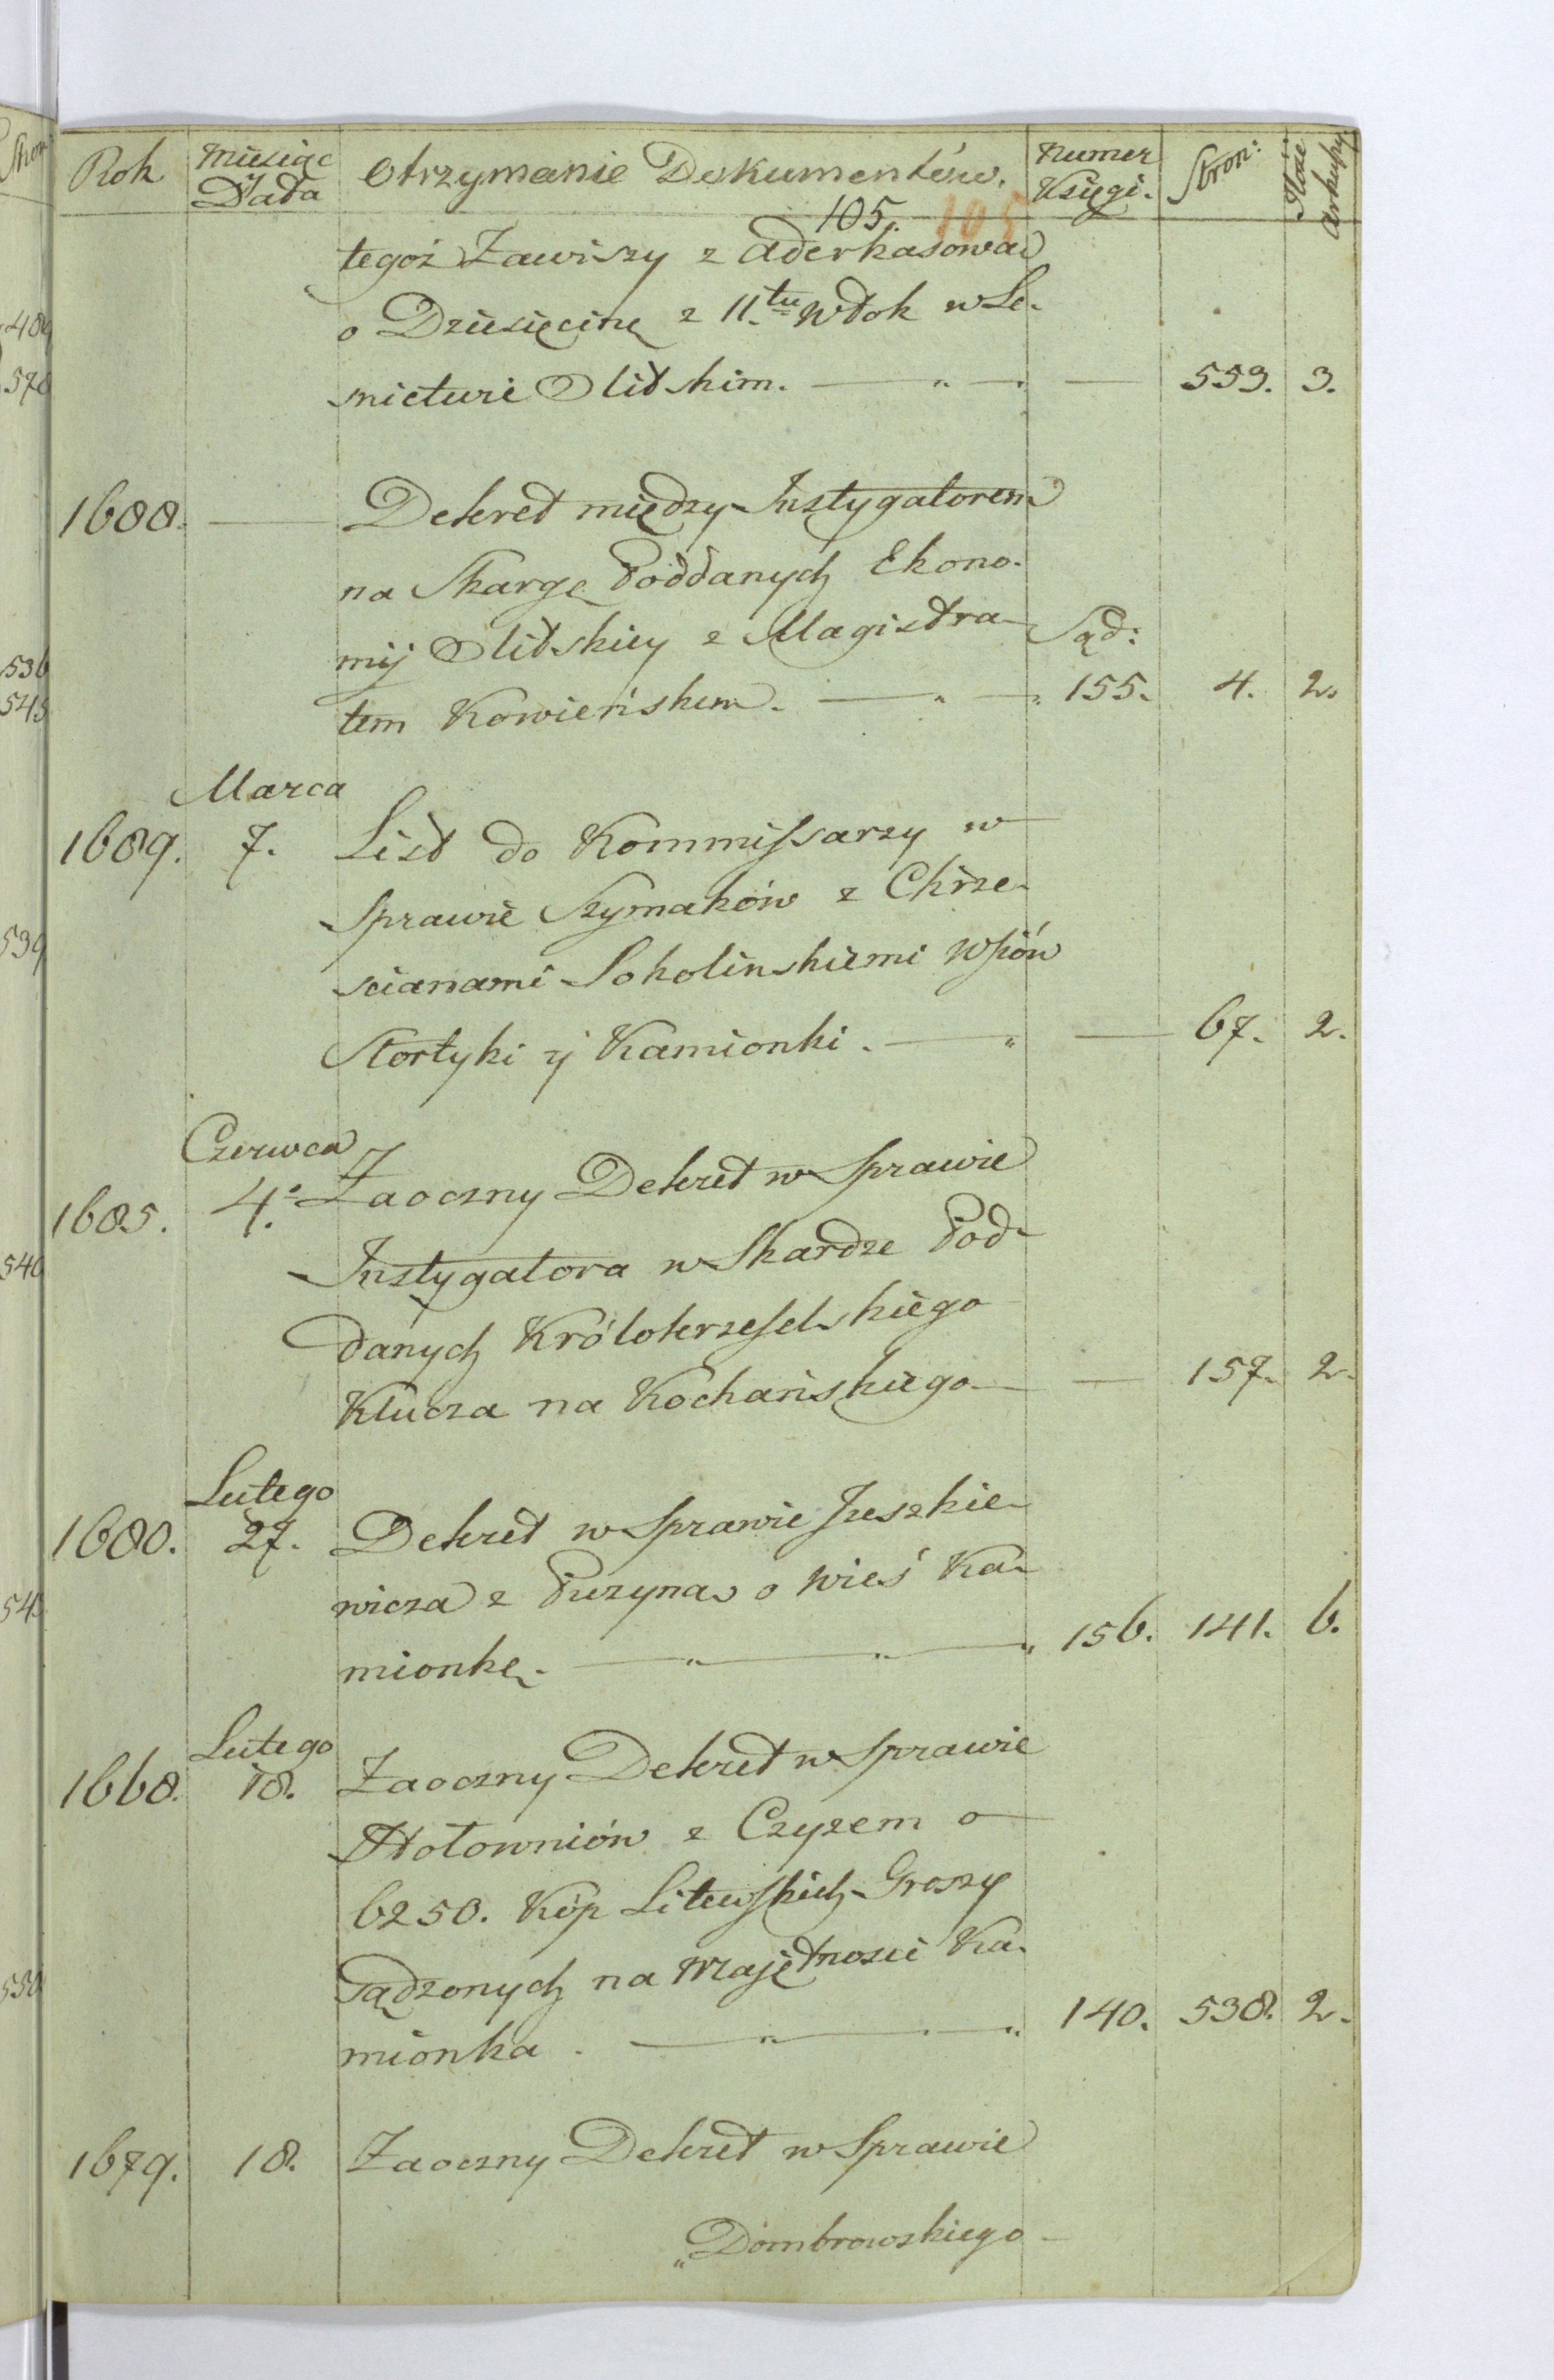 Rok Miesiąc Data Otrzymanie Dokumentów. Numer Księgi. Stron: Ilość arkuszy
105. 105
tegoż Zawiszy z Aderkasową
o Dziesięcinę z 11.tu Włok w Le-
snictwie Olitskim. — 559. 3.
1688. — Dekret między Instygatorem
na Skargę Poddanych Ekono-
mij Olitskiey z Magistra- Sąd:
tem Kowieńskim. — 155. 4. 2.
Marca
1689. 7. List do Kommissarzy w
Sprawie Szymaków z Chrze-
scianami Sokolinskiemi Wsiów
Stortyki y Kamionki. — 67. 2.
Czerwca
1685. 4. Zaoczny Dekret w Sprawie
Instygatora w Skardze Pod-
danych Królokrzeselskiego
Klucza na Kochańskiego — 157. 2.
Lutego
1680. 27. Dekret w Sprawie Juszkie-
wicza z Puzyną o Wieś Ka-
mionkę. — 156. 141. 6.
Lutego
1668. 18. Zaoczny Dekret w Sprawie
Hołowniów z Czyzem o
6250. Kóp Litewskich Groszy
Sądzonych na Majętnosci Ka-
mionka. — 140. 538. 2.
1679. 18. Zaoczny Dekret w Sprawie
„Dombrowskiego